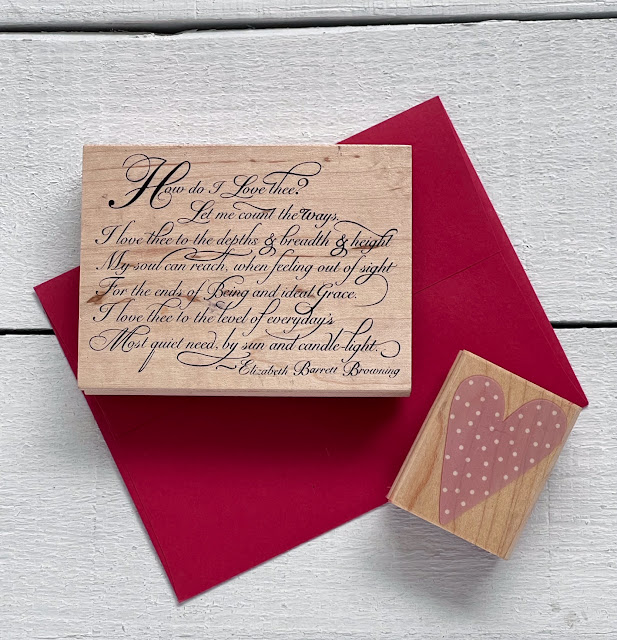 How do I Love thee?
Let me count the ways.
I love thee to the depths & breadth & height
My soul can reach, when feeling out of sight
For the ends of Being and ideal Grace.
I love thee to the level of everyday's
Most quiet need, by sun and candle-light.
~ Elizabeth Barrett Browning